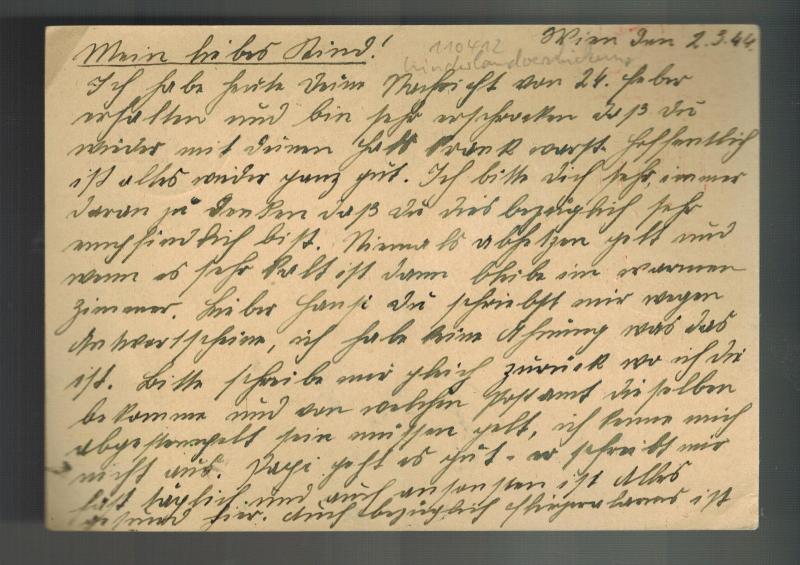 Wien den 2.3.44.
Mein liebes Kind!
110412
Kinderlandverschickung
Ich habe heute deine Nachricht von 24. Feber
erhalten und bin sehr erschrocken daß du
wieder mit deinen Hals krank warst. Hoffentlich
ist alles wieder ganz gut. Ich bitte dich sehr, immer
daran zu denken daß du diesbezüglich sehr
empfindlich bist. Niemals abhetzen gelt und
wenn es sehr kalt ist dann bleibe im warmen
Zimmer. Lieber Hansi du schriebst mir wegen
Antwortscheine, ich habe keine Ahnung was das
ist. Bitte schreibe mir gleich zurück wo ich die
bekomme und von welchen Postamt dieselben
abgestempelt sein müssen gelt, ich kenne mich
nicht aus. Papi geht es gut - er schreibt mir
fast täglich und auch ansonsten ist Alles
gesund hier. Auch bezüglich Fliegeralarms ist